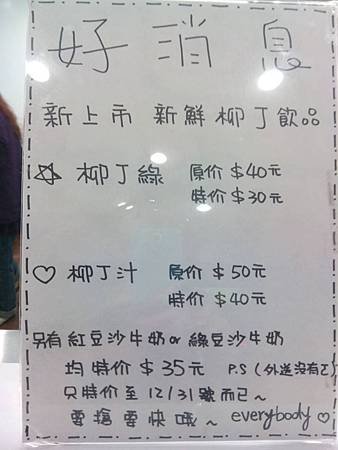 好消息
新上市 新鮮柳丁飲品
☆ 柳丁綠 原价 $40元
特价 $30元
♡ 柳丁汁 原价 $50元
特价 $40元
另有紅豆沙牛奶or 綠豆沙牛奶
均特价 $35元 P.S (外送沒有
只特价至 12/31號而已~
要搶要快哦~ everybody ♡